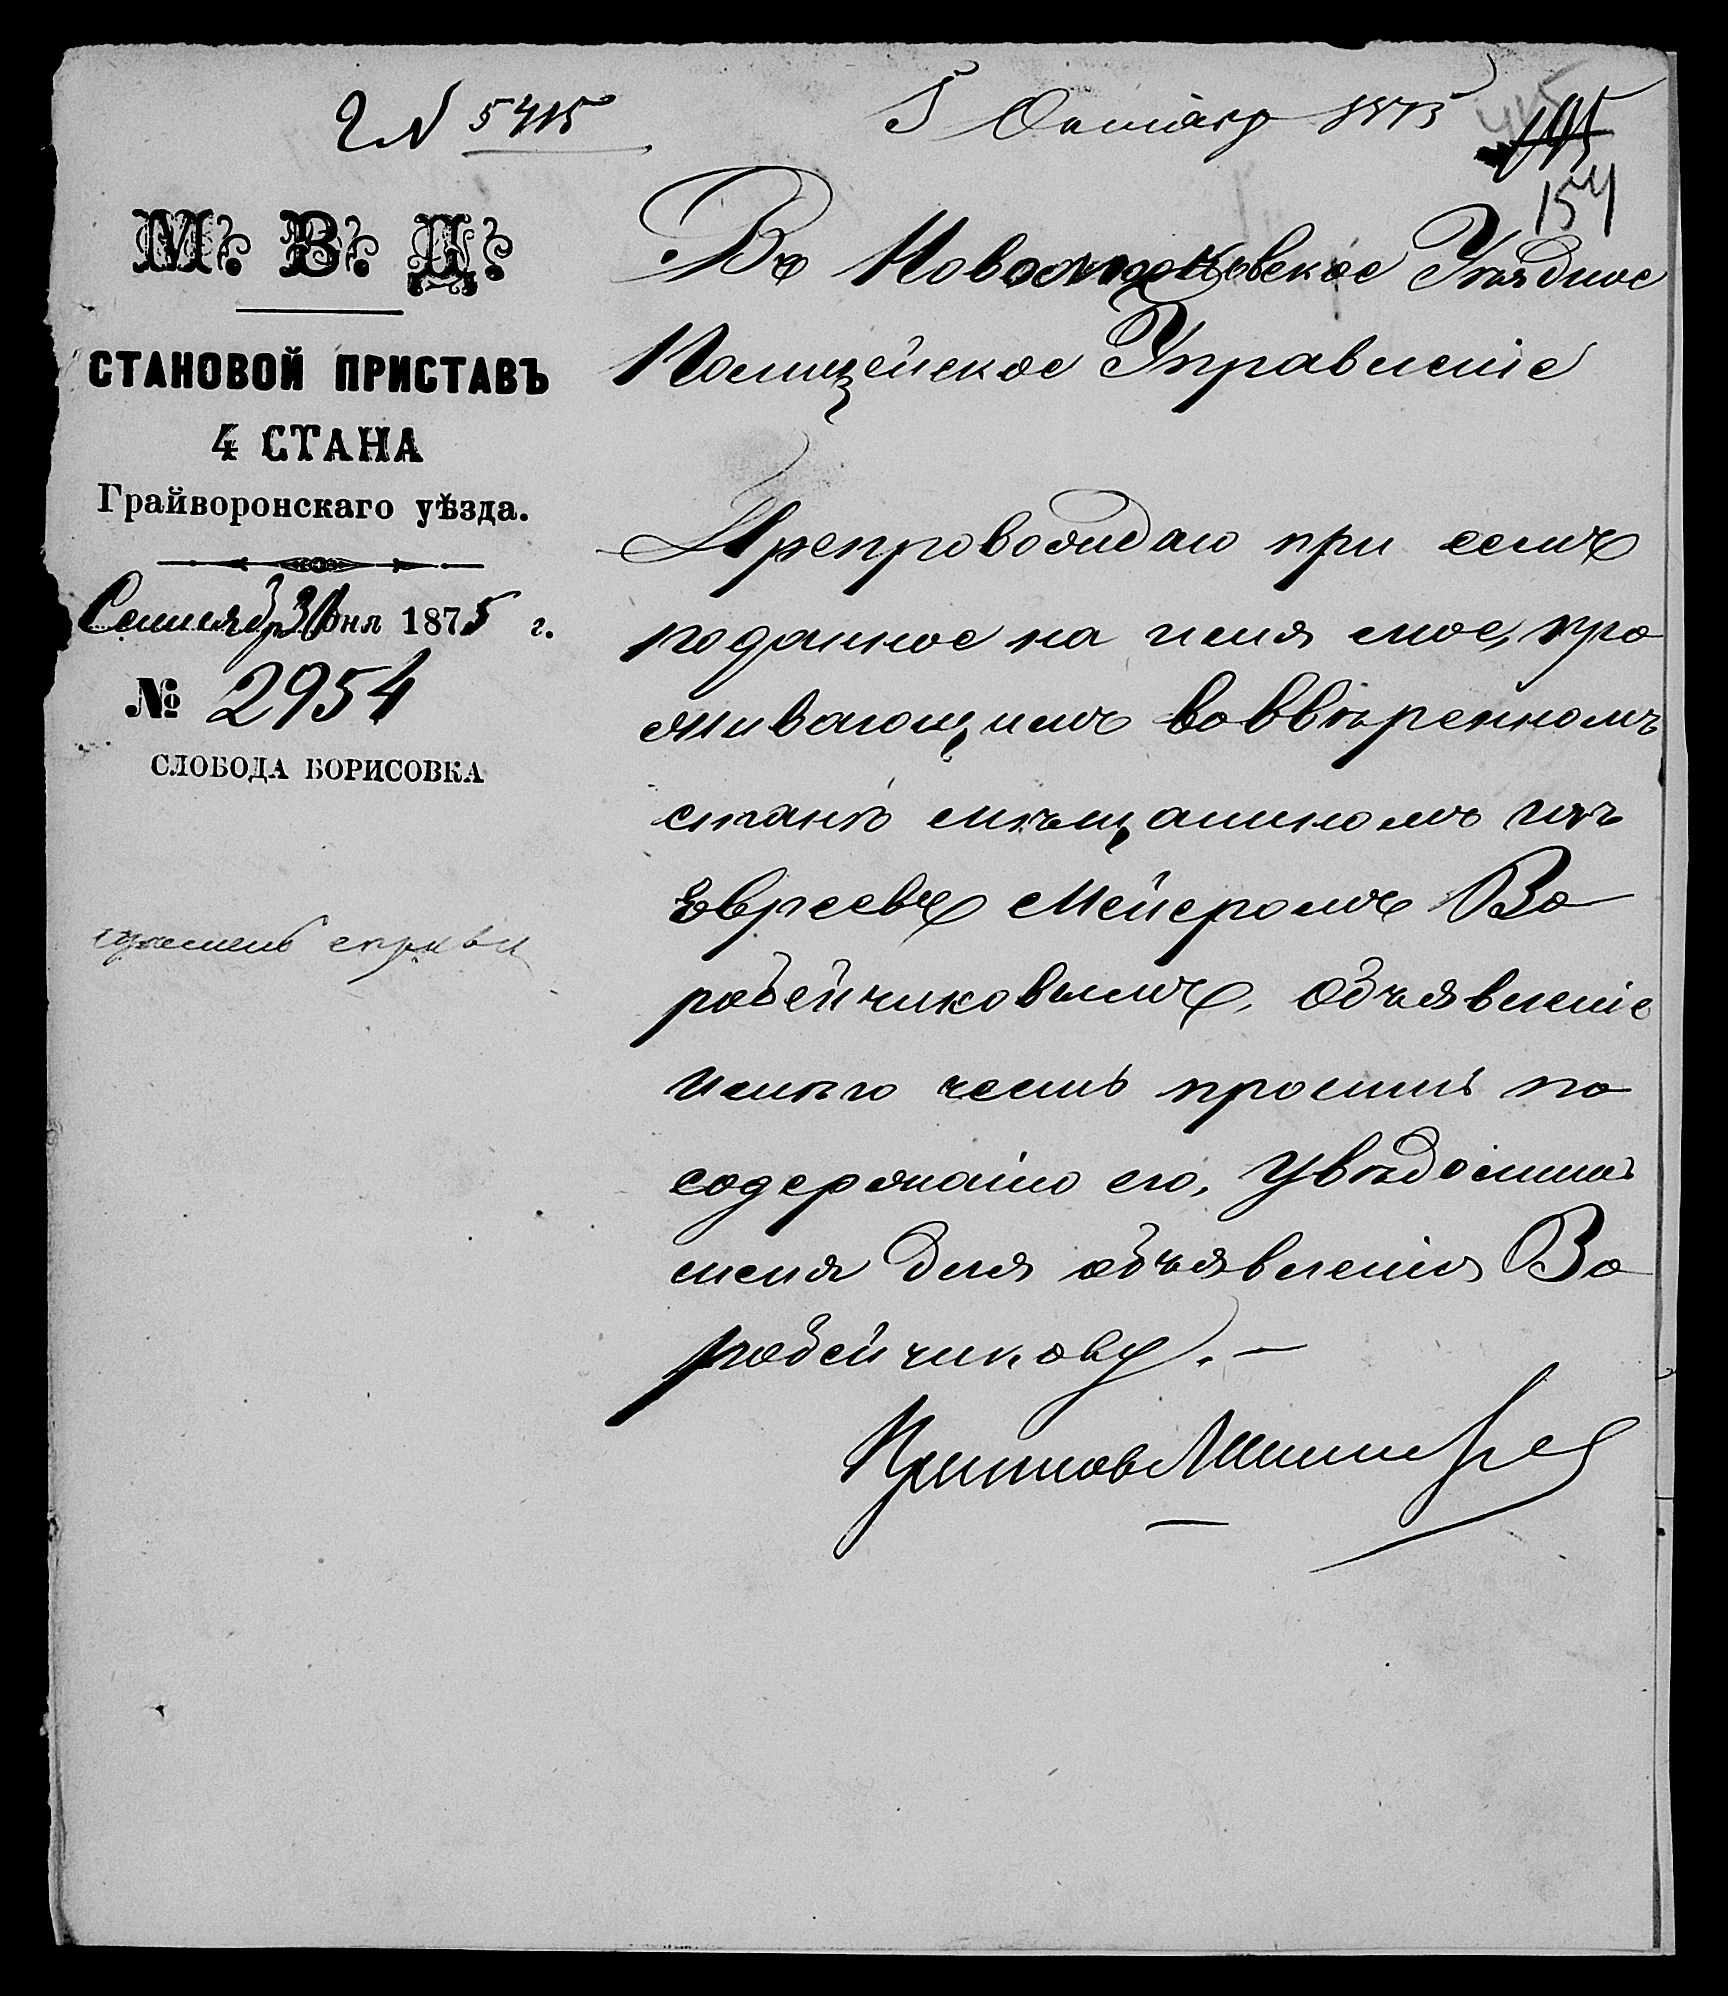 № 5415
5 Октября 1875
154
М. В. Д.
СТАНОВОЙ ПРИСТАВЪ
4 СТАНА
Грайворонскаго уѣзда.
Сентября 30 дня 1875 г.
№ 2954
СЛОБОДА БОРИСОВКА
Въ Уѣздное
Полицейское Управленіе
Препровождаю при семъ
поданное на имя мое, про
живающимъ во ввѣренномъ
станѣ мѣщаниномъ изъ
Евреевъ Мейеромъ Во
робейчиковымъ, объявленіе
имѣю честь просить по
содержанію его, увѣдомить
меня для объявленія Во
робейчикову. —